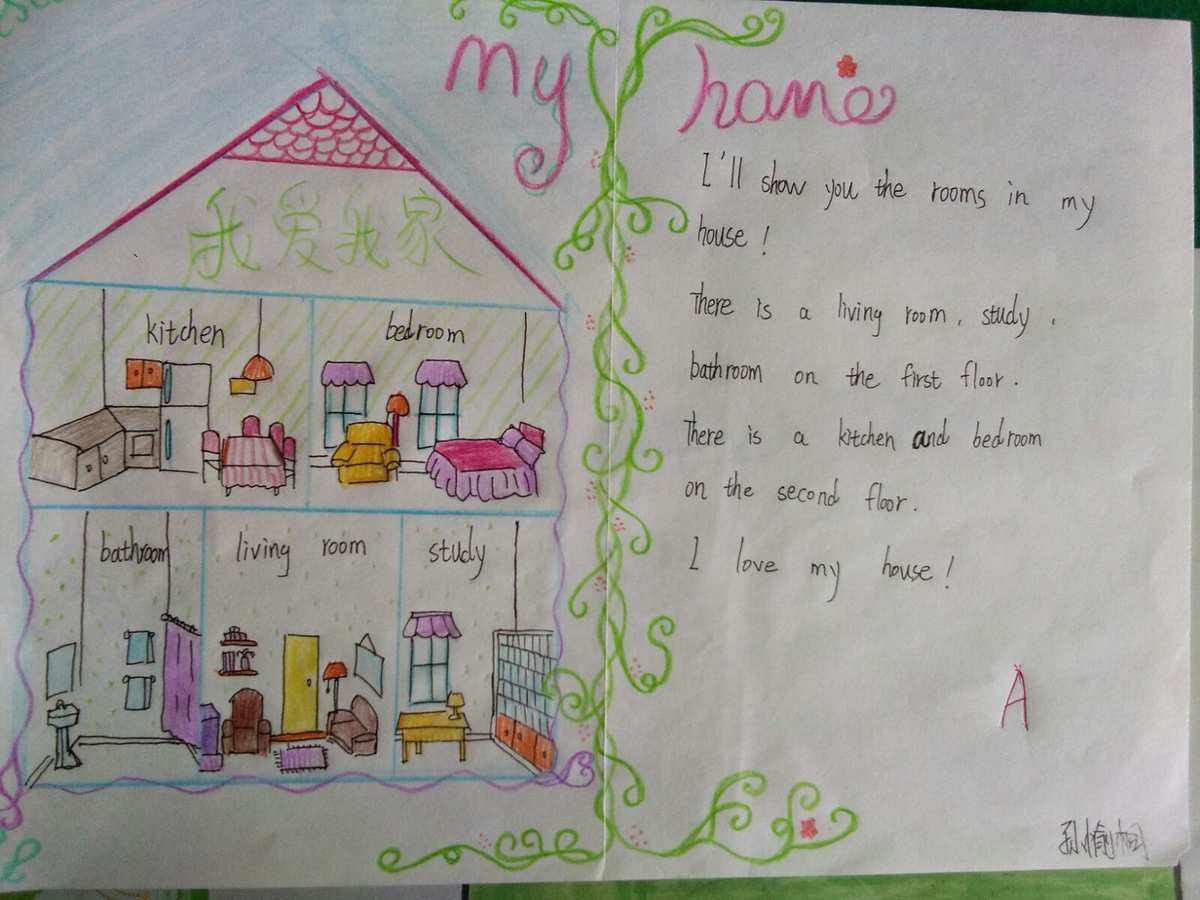 My home
我爱我家
kitchen
bedroom
bathroom
living room
study
I'll show you the rooms in my
house!
There is a living room, study,
bathroom on the first floor.
There is a kitchen and bedroom
on the second floor.
I love my house!
A